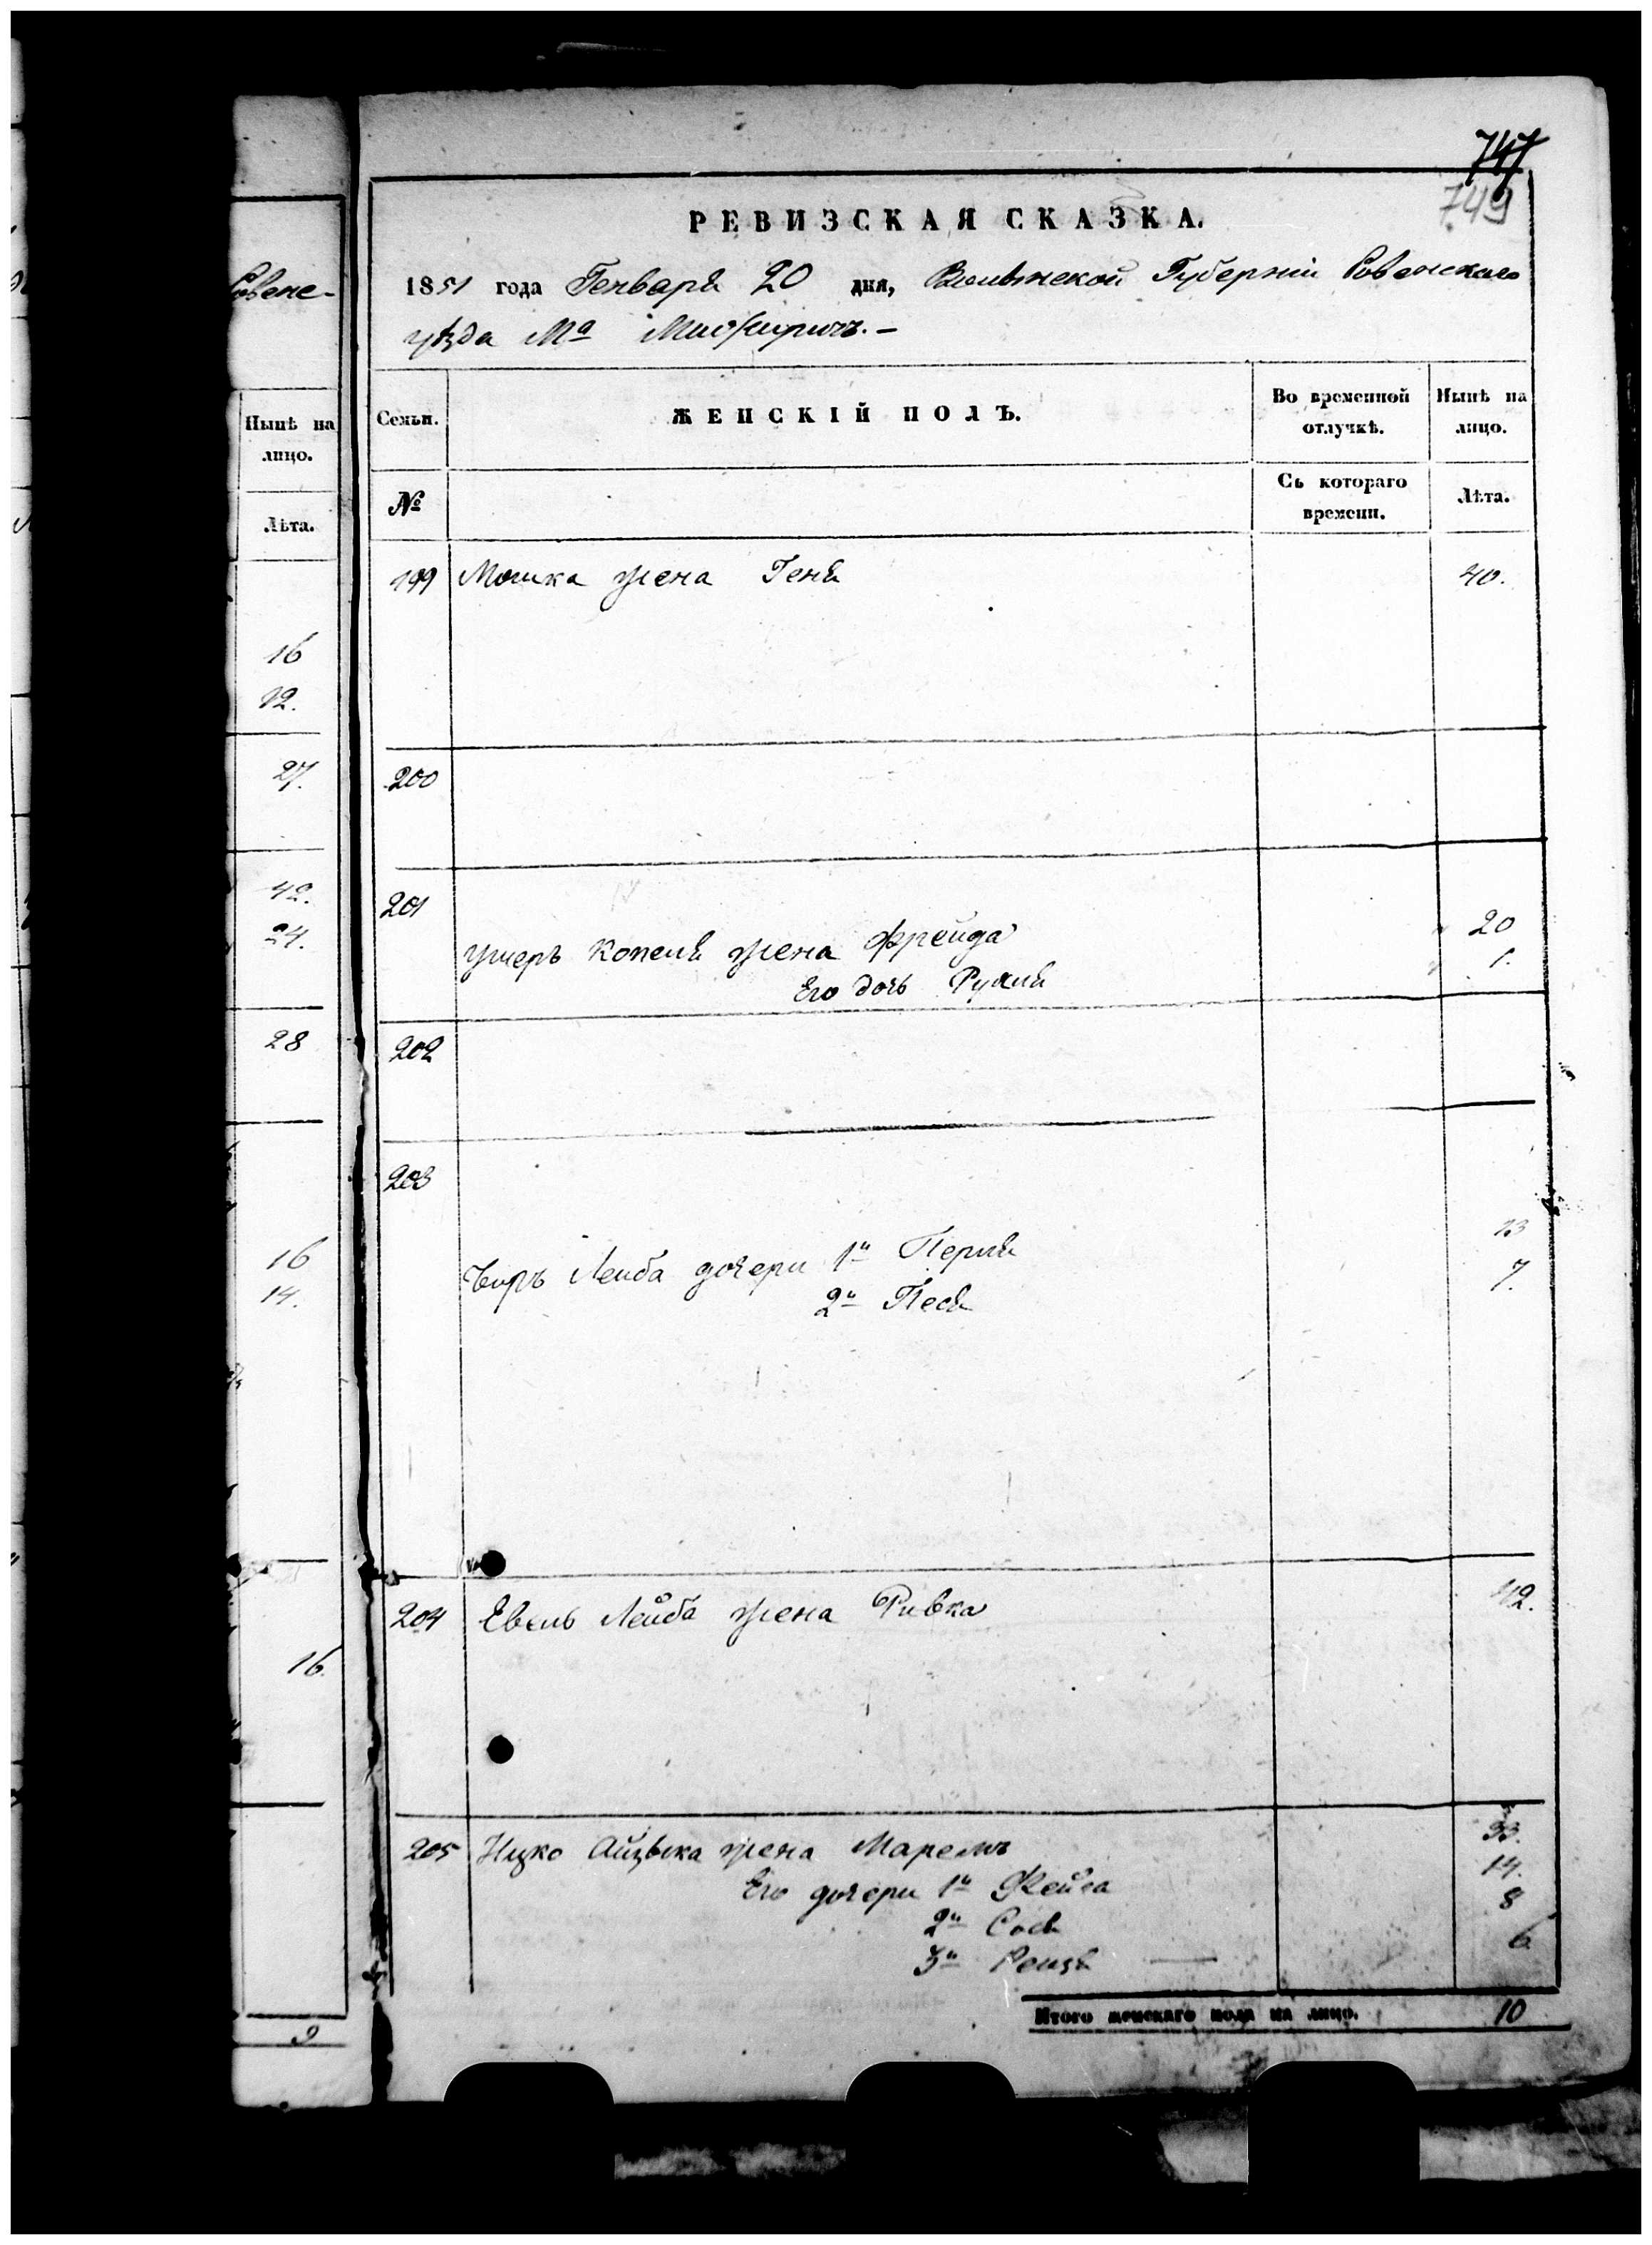 747
749
РЕВИЗСКАЯ СКАЗКА.
1851 года Генваря 20 дня, Волынской Губерніи Ровенскаго
уѣзда Ма
Семьи. ЖЕНСКІЙ ПОЛЪ. Во временной отлучкѣ. Нынѣ на лицо.
№ Съ котораго времени. Лѣта.
199 Мошка жена Геня 40.
200
201
Ушеръ Копеля жена Фрейда 20
Его дочь Рухля 1.
202
203
Лейба дочери 1я Перля 13
2я Песя 7.
204 Евель Лейба жена Ривка 42.
205 Ицко Айзыка жена 33.
Его дочери 1я Фейга 14.
2я Сося 8
3я 6
Итого женскаго пола на лицо. 10
Ровенс-
Нынѣ на
лицо.
Лѣта.
16
12.
27.
42.
24.
28
16
14.
16.
9